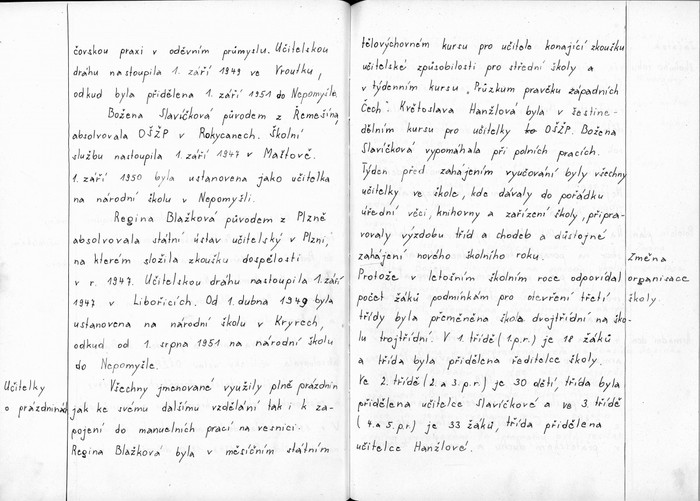 čovskou praxi v oděvním průmyslu. Učitelskou
dráhu nastoupila 1. září 1949 ve Vroutku,
odkud byla přidělena 1. září 1951 do Nepomyšle.
Božena Slavíčková původem z Řemešína,
absolvovala OŠŽP v Rokycanech. Školní
službu nastoupila 1. září 1947 v Maštově.
1. září 1950 byla ustanovena jako učitelka
na národní školu v Nepomyšli.
Regina Blažková původem z Plzně
absolvovala státní ústav učitelský v Plzni,
na kterém složila zkoušku dospělosti
v r. 1947. Učitelskou dráhu nastoupila 1. září
1947 v Libořicích. Od 1. dubna 1949 byla
ustanovena na národní školu v Kryrech,
odkud od 1. srpna 1951 na národní školu
do Nepomyšle.
Učitelky
o prázdninách
Všechny jmenované využily plně prázdnin
jak ke svému dalšímu vzdělání tak i k za-
pojení do manuelních prací na vesnici.
Regina Blažková byla v měsíčním státním
tělovýchovném kursu pro učitele konající zkoušku
učitelské způsobilosti pro střední školy a
v týdenním kursu „Průzkum pravěku západních
Čech". Květoslava Hanžlová byla v šestine-
dělním kursu pro učitelky OŠŽP. Božena
Slavíčková vypomáhala při polních pracích.
Týden před zahájením vyučování byly všechny
učitelky ve škole, kde dávaly do pořádku
úřední věci, knihovny a zařízení školy, připra-
vovaly výzdobu tříd a chodeb a důstojné
zahájení nového školního roku.
Změna
organisace
školy.
Protože v letošním školním roce odpovídal
počet žáků podmínkám pro otevření třetí
třídy byla přeměněna škola dvojtřídní na ško-
lu trojtřídní. V 1. třídě (1.p.r.) je 18 žáků
a třída byla přidělena ředitelce školy.
Ve 2. třídě (2. a 3. p.r.) je 30 dětí, třída byla
přidělena učitelce Slavíčkové a ve 3. třídě
(4. a 5. p.r.) je 33 žáků, třída přidělena
učitelce Hanžlové.